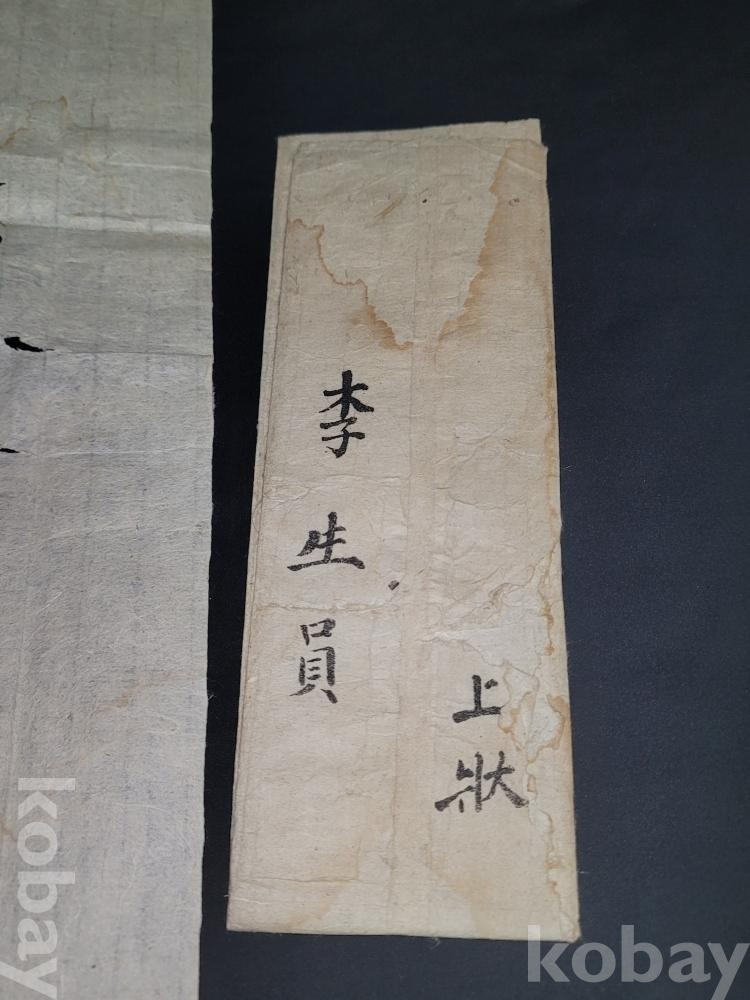 上狀
李生員
kobay
kobay